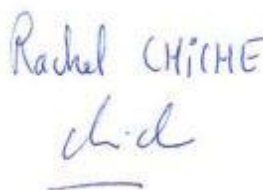 Rachel CHiCHE